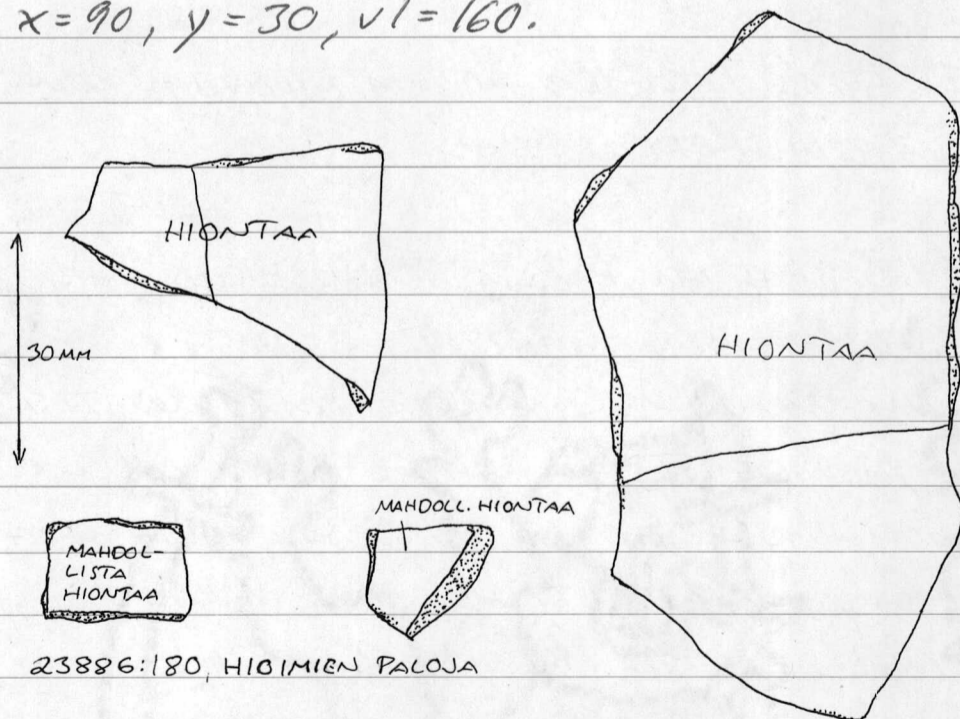 x = 90, y = 30, vl = 160.
HIONTAA
30 MM
HIONTAA
MAHDOLL. HIONTAA
MAHDOL-
LISTA
HIONTAA
23886:180, HIOIMIEN PALOJA